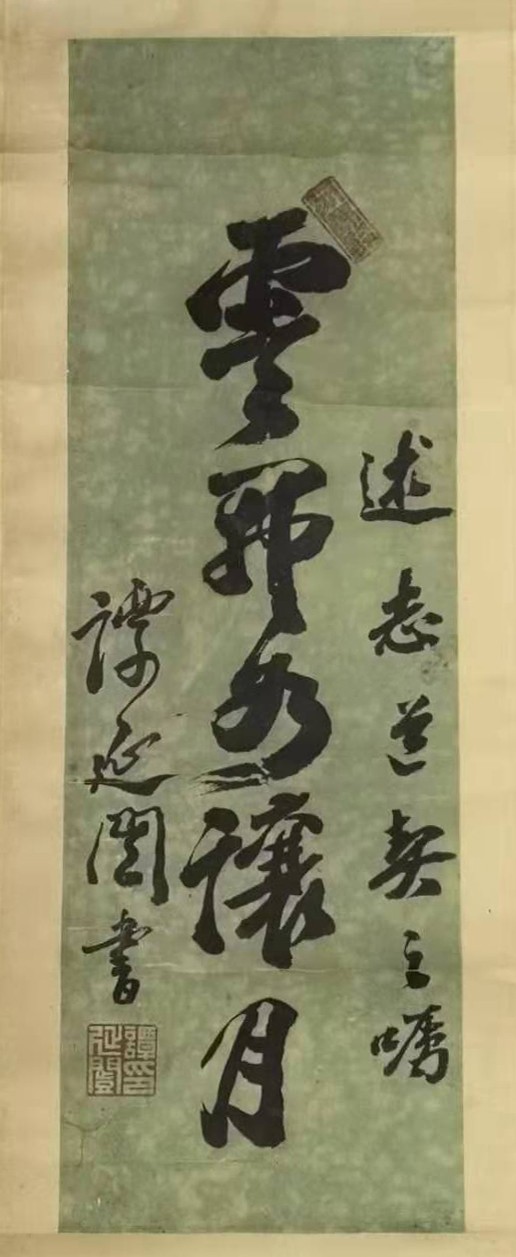 述志道契之嘱
雲歸如讓月
譚延闓書
譚延闓印